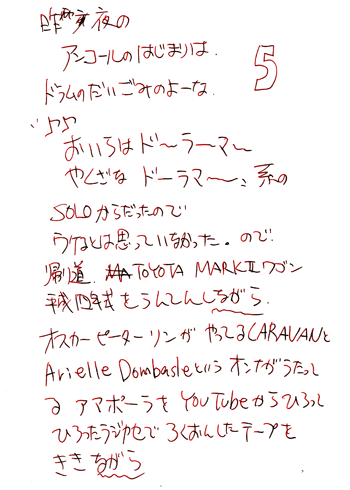 昨夜の
アンコールのはじまりは.
5
ドラムのだいごみのよーな.
"♪♪
おいらはド〜ラーマ〜
やくざな ドーラマ〜、系の
SOLOからだったので
ウケるとは思っていなかった。ので.
帰り道. TOYOTA MARKⅡワゴン
平成四年式をうんてんしながら.
オスカーピーターソンが やってるCARAVANと
Arielle Dombasleという オンナがうたって
る アマポーラを YouTubeからひろっ
ひろったラジカセで ろくおんしたテープを
ききながら